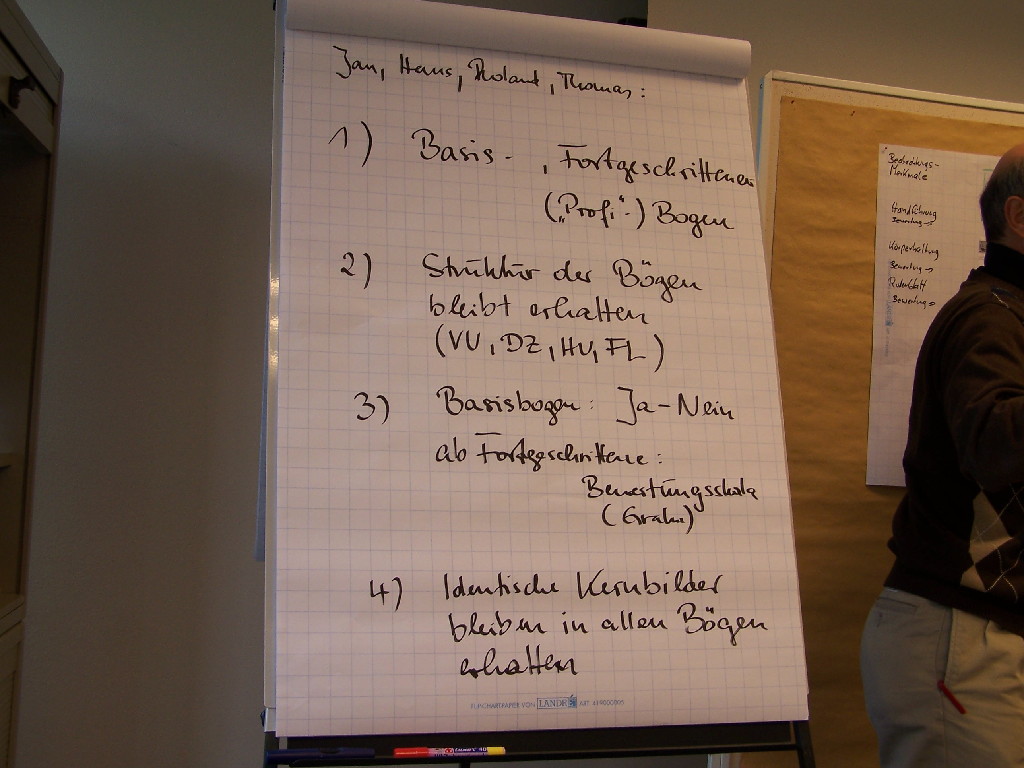 Jan, Hans, Roland, Thomas:
1) Basis-, Fortgeschrittenen
("Profi"-) Bogen
2) Struktur der Bögen
bleibt erhalten
(VU, DZ, HU, FL)
3) Basisbogen: Ja-Nein
ab Fortgeschrittene:
Bewertungsskala
4) Identische Kernbilder
bleiben in allen Bögen
erhalten
FLIPCHARTPAPIER VON LANDRÉ
Beobachtungs-
Merkmale
Handführung
Bewertung →
Körperhaltung
Bewertung →
Ruderblatt
Bewertung →